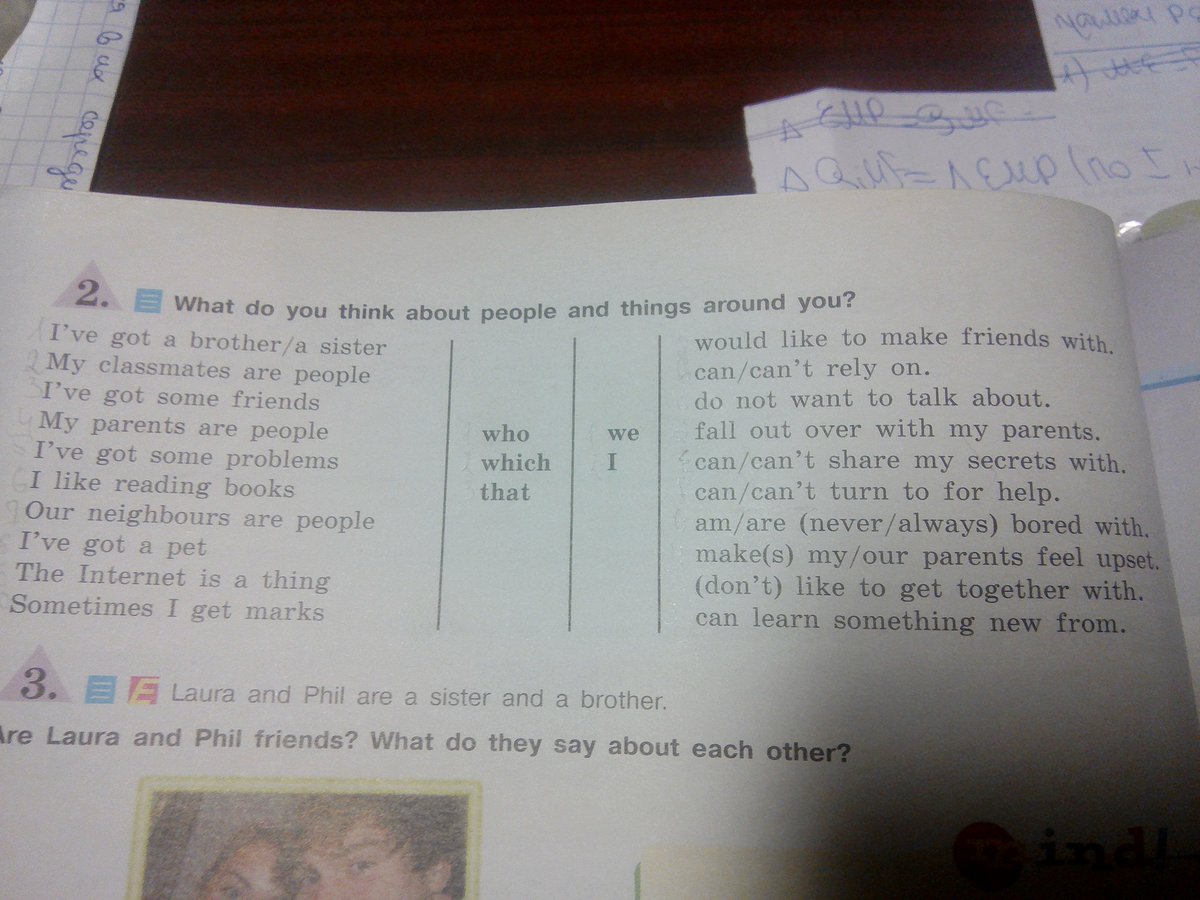 2. What do you think about people and things around you?
I've got a brother/a sister
My classmates are people
I've got some friends
My parents are people
I've got some problems
I like reading books
Our neighbours are people
I've got a pet
The Internet is a thing
Sometimes I get marks
who
which
that
we
I
would like to make friends with.
can/can't rely on.
do not want to talk about.
fall out over with my parents.
can/can't share my secrets with.
can/can't turn to for help.
am/are (never/always) bored with.
make(s) my/our parents feel upset.
(don't) like to get together with.
can learn something new from.
3. Laura and Phil are a sister and a brother.
Are Laura and Phil friends? What do they say about each other?